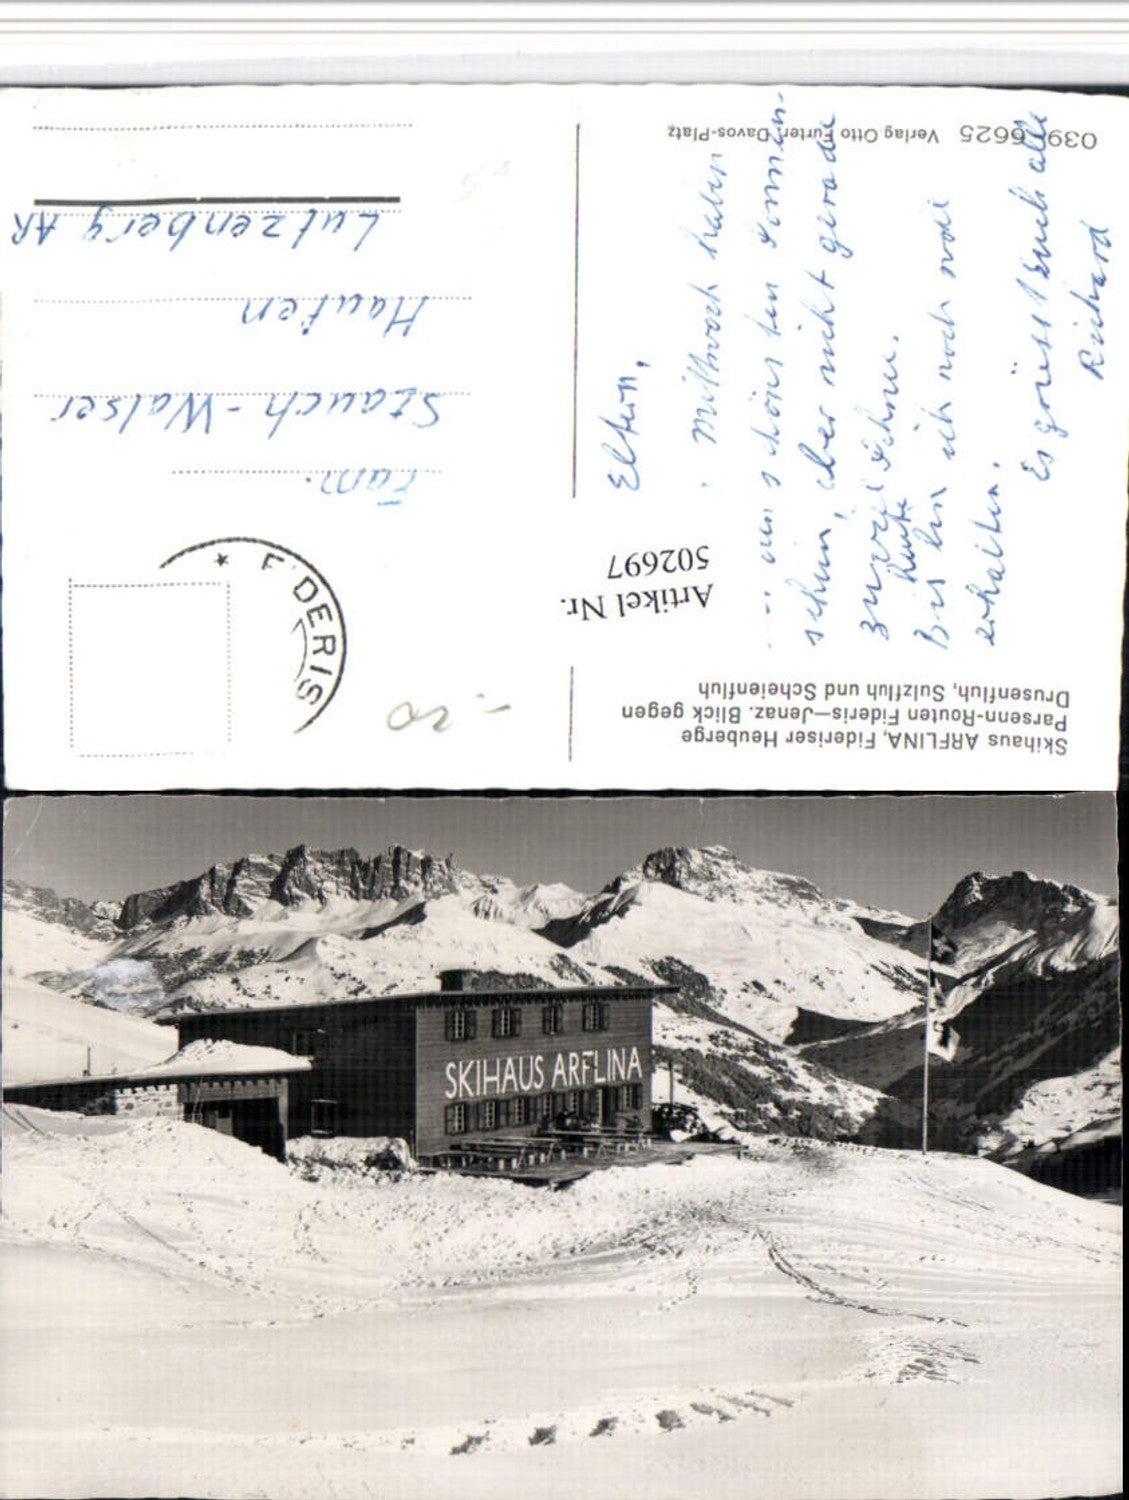 Skihaus ARFLINA, Fideriser Heuberge
Parsenn-Routen Fideris—Jenaz. Blick gegen
Drusenfluh, Sulzfluh und Scheienfluh
Artikel Nr.
502697
Eltern,
Mittwoch haben
schönsten
schein, aber nicht gerade
zuviel Schnee.
heute
Bis bin ich noch
erhalten.
Es grüsst Euch alle
Richard
039 6625 Verlag Otto Furter, Davos-Platz
FIDERIS
-.20
Fam.
Stauch-Walser
Haufen
Lutzenberg AR
SKIHAUS ARFLINA